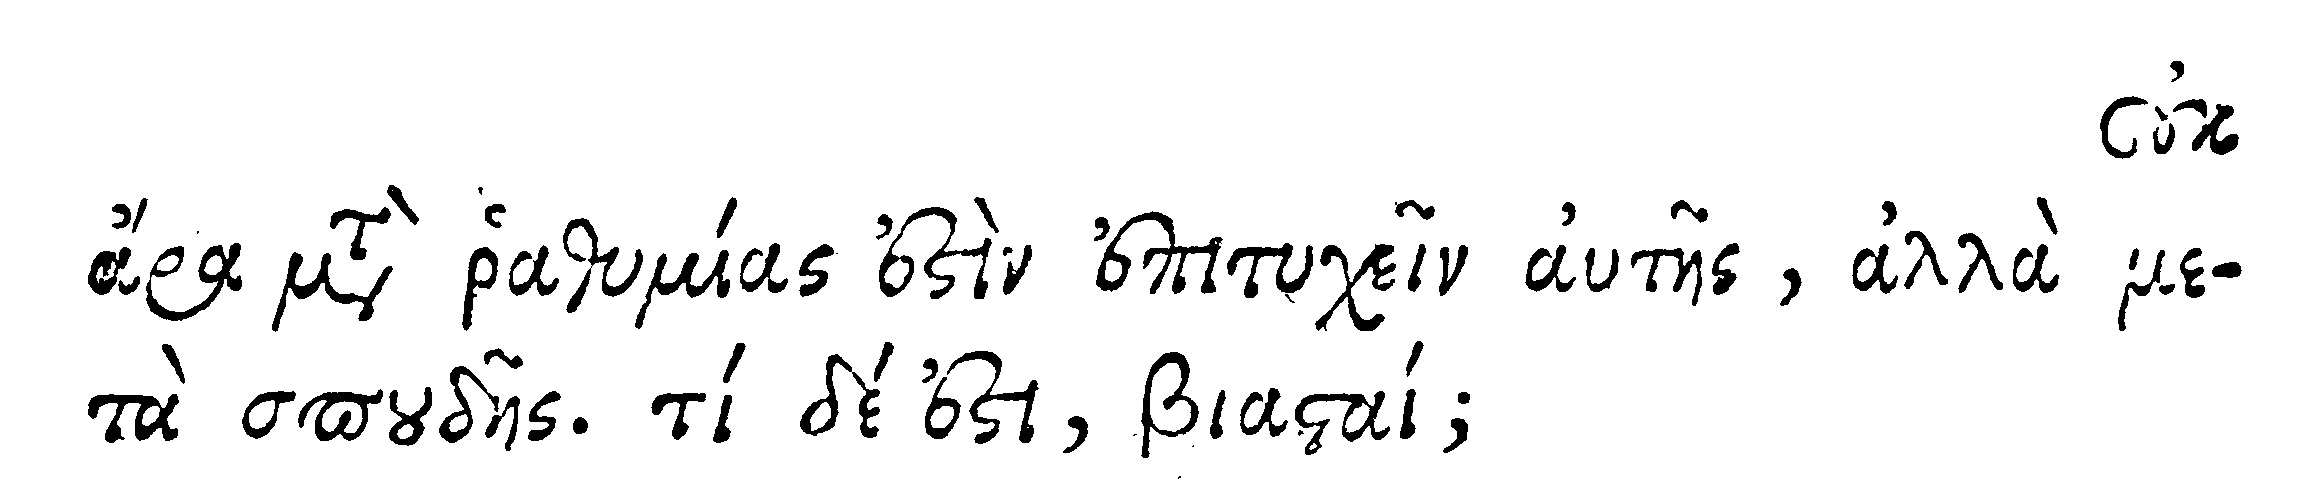 οὐκ
ἄρα μετὰ ῥαθυμίας ἐστὶν ἐπιτυχεῖν αὐτῆς, ἀλλὰ με-
τὰ σπουδῆς. τί δέ ἐστι, βιασταί;